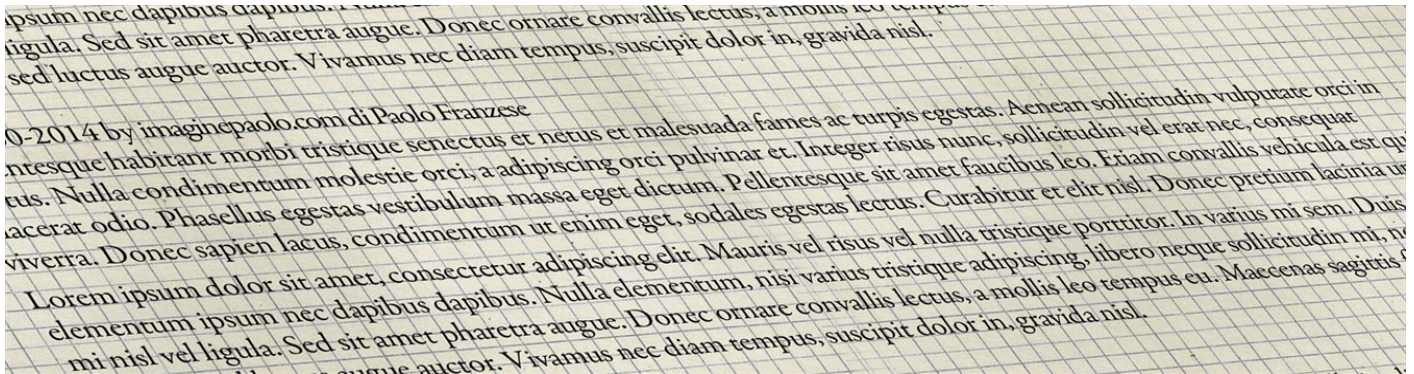 ipsum nec dapibus dapibus.
ligula. Sed sit amet pharetra augue. Donec ornare convallis lectus, a mollis leo tempus
sed luctus augue auctor. Vivamus nec diam tempus, suscipit dolor in, gravida nisl.
0-2014 by imaginepaolo.com di Paolo Franzese
ntesque habitant morbi tristique senectus et netus et malesuada fames ac turpis egestas. Aenean sollicitudin vulputate orci in
tus. Nulla condimentum molestie orci, a adipiscing orci pulvinar et. Integer risus nunc, sollicitudin vel erat nec, consequat
acerat odio. Phasellus egestas vestibulum massa eget dictum. Pellentesque sit amet faucibus leo. Etiam convallis vehicula est qu
viverra. Donec sapien lacus, condimentum ut enim eget, sodales egestas lectus. Curabitur et elit nisl. Donec pretium lacinia ur
Lorem ipsum dolor sit amet, consectetur adipiscing elit. Mauris vel risus vel nulla tristique porttitor. In varius mi sem. Duis
elementum ipsum nec dapibus dapibus. Nulla elementum, nisi varius tristique adipiscing, libero neque sollicitudin mi, n
mi nisl vel ligula. Sed sit amet pharetra augue. Donec ornare convallis lectus, a mollis leo tempus eu. Maecenas sagittis
augue auctor. Vivamus nec diam tempus, suscipit dolor in, gravida nisl.